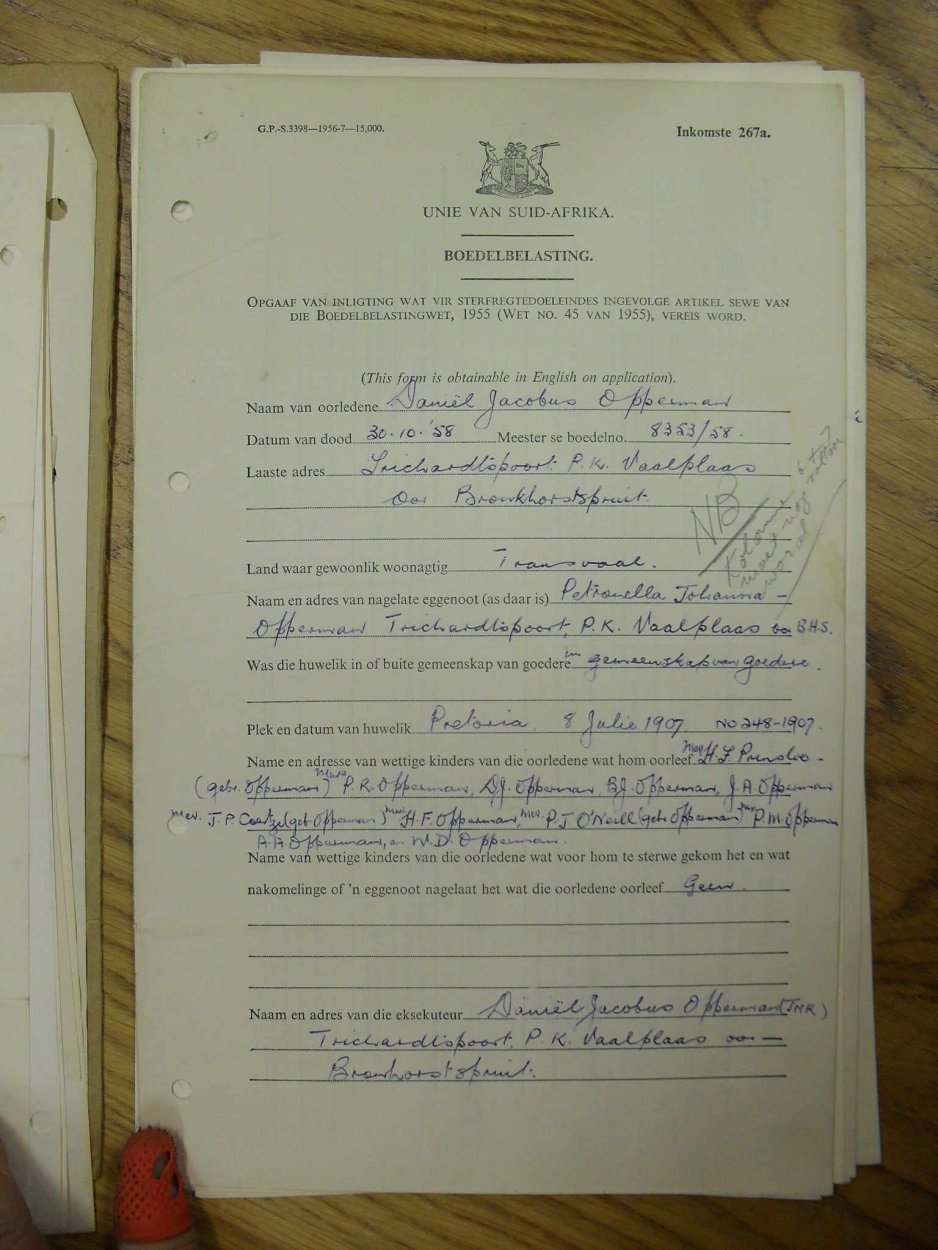 G.P.-S.3398—1956-7—15,000.
Inkomste 267a.
UNIE VAN SUID-AFRIKA.
BOEDELBELASTING.
OPGAAF VAN INLIGTING WAT VIR STERFREGTEDOELEINDES INGEVOLGE ARTIKEL SEWE VAN
DIE BOEDELBELASTINGWET, 1955 (WET NO. 45 VAN 1955), VEREIS WORD.
(This form is obtainable in English on application).
Naam van oorledene Daniël Jacobus Opperman
Datum van dood 30.10.'58 Meester se boedelno. 8353/58.
Laaste adres Trichardtspoort P.K. Vaalplaas
oor Bronkhorstspruit.
NB
Kolomme
moet nog
voltooi
word
Land waar gewoonlik woonagtig Transvaal.
Naam en adres van nagelate eggenoot (as daar is) Petronella Johanna -
Opperman Trichardtspoort, P.K. Vaalplaas oor B.H.S.
Was die huwelik in of buite gemeenskap van goedere in gemeenskap van goedere.
Plek en datum van huwelik Pretoria, 8 Julie 1907 No 248-1907.
Name en adresse van wettige kinders van die oorledene wat hom oorleef Mev H.F. Prinsloo -
(geb. Opperman) Mnre P.R. Opperman, D.J. Opperman, B.J. Opperman, J.A. Opperman
Mev. J.P. Coetze (geb Opperman) Mnr H.F. Opperman, Mev. P.J O'Neill (geb Opperman) Mnr P.M. Opperman
A.A. Opperman, en W.D. Opperman.
Name van wettige kinders van die oorledene wat voor hom te sterwe gekom het en wat
nakomelinge of 'n eggenoot nagelaat het wat die oorledene oorleef Geen.
Naam en adres van die eksekuteur Daniël Jacobus Opperman (JNR)
Trichardtspoort, P.K. Vaalplaas oor -
Bronkhorstspruit.